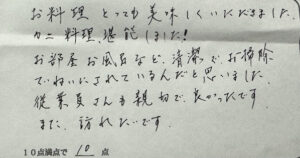 お料理 とっても 美味しくいただきました。
カニ料理、堪能しました!
お部屋 お風呂など、清潔で、お掃除
ていねいにされているんだと思いました。
従業員さんも親切で、良かったです。
また、訪れたいです。
10点満点で 10 点